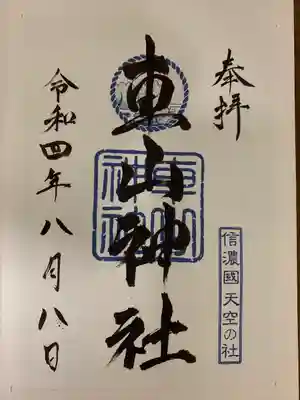 奉拝
信濃國 天空の社
東山神社
東山神社
令和四年八月八日